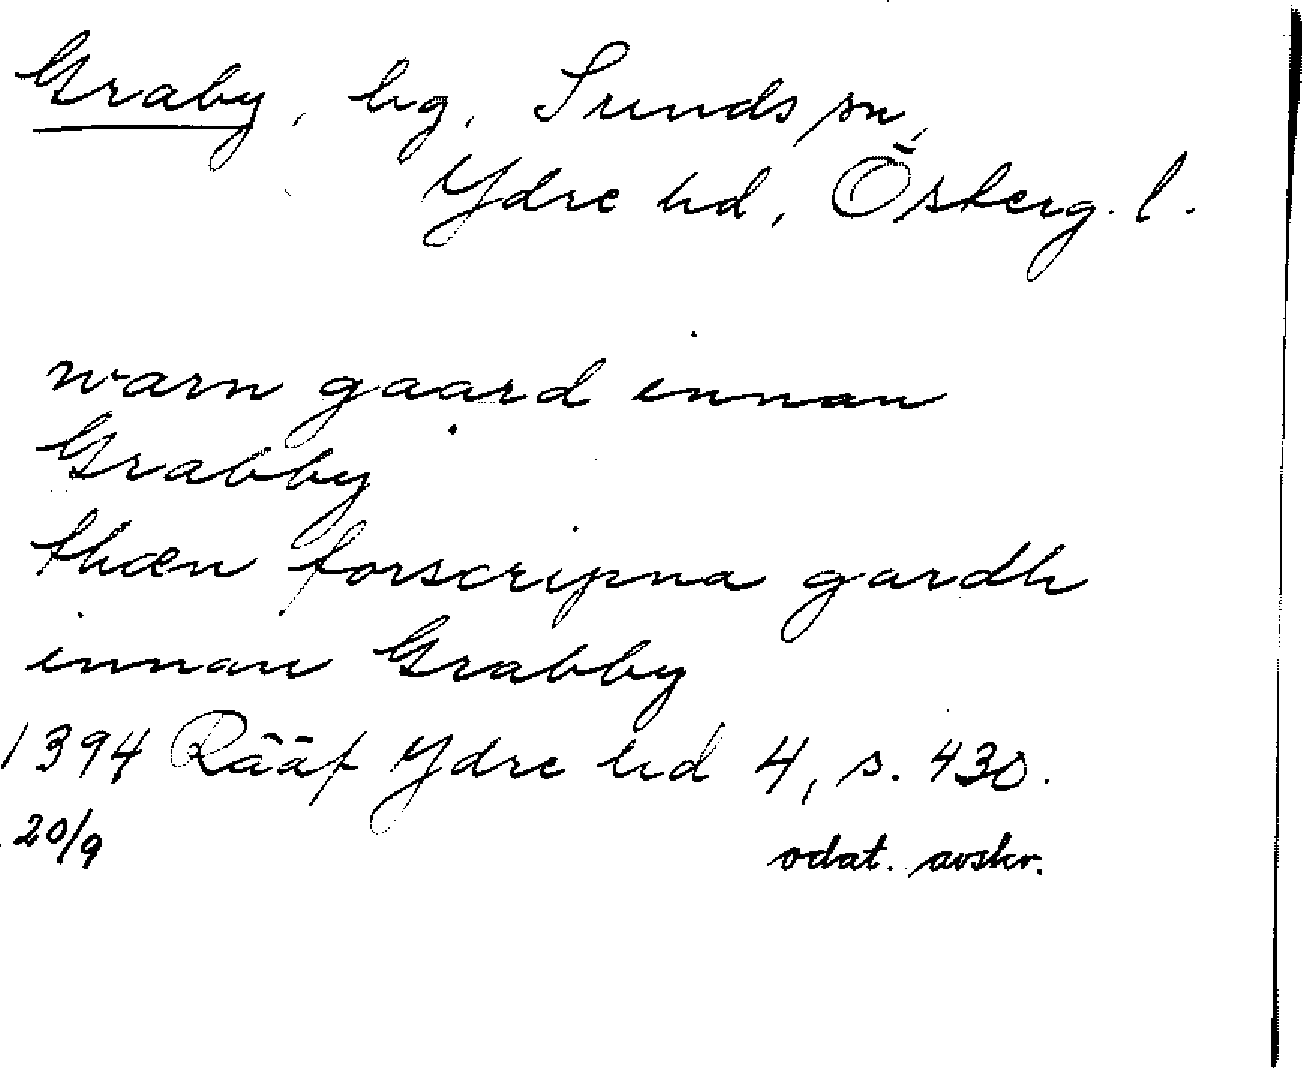 Graby, hg, Sunds sn,
Ydre hd, Österg. l.
warn gaard innan
Grabby
thæn forscripna gardh
innan Grabby
1394 Rääf Ydre hd 4, s. 430.
20/9 odat. avskr.